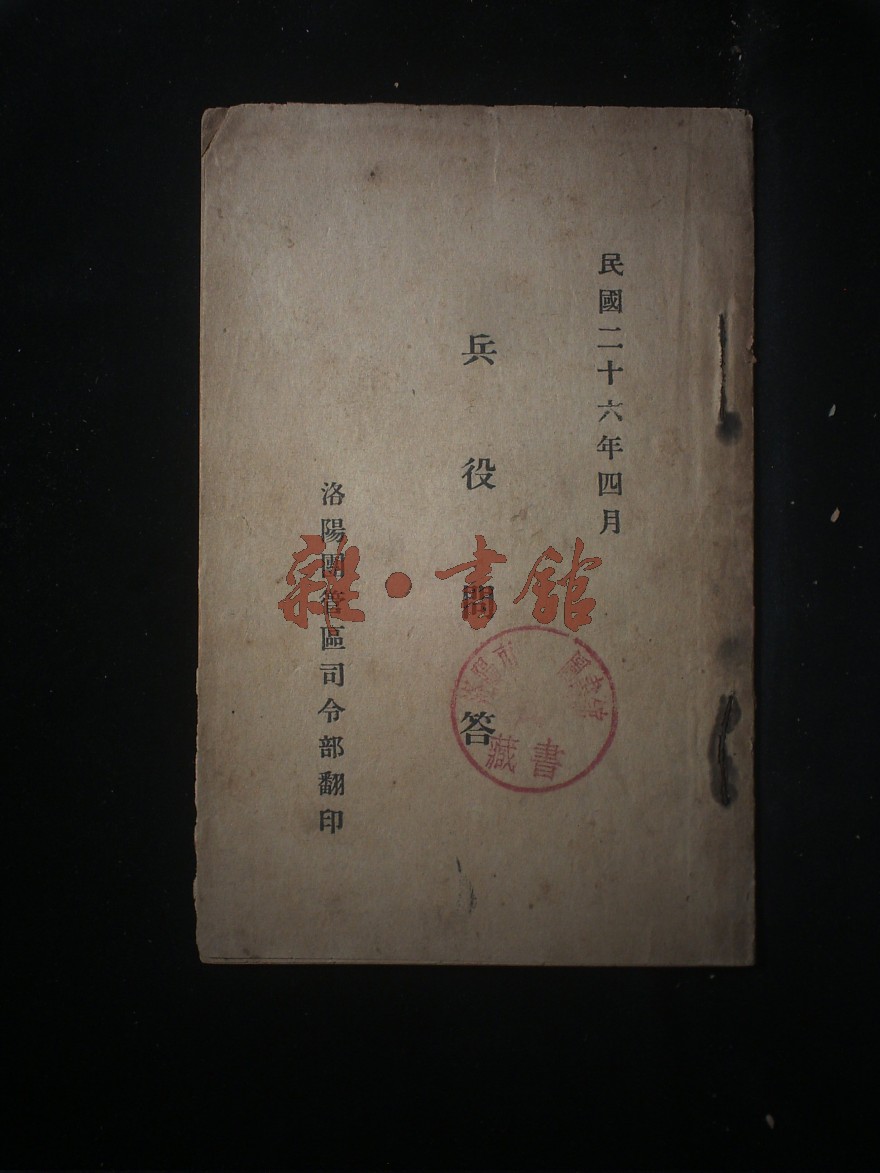 民國二十六年四月
兵役問答
洛陽團管區司令部翻印
雜·書館
藏書